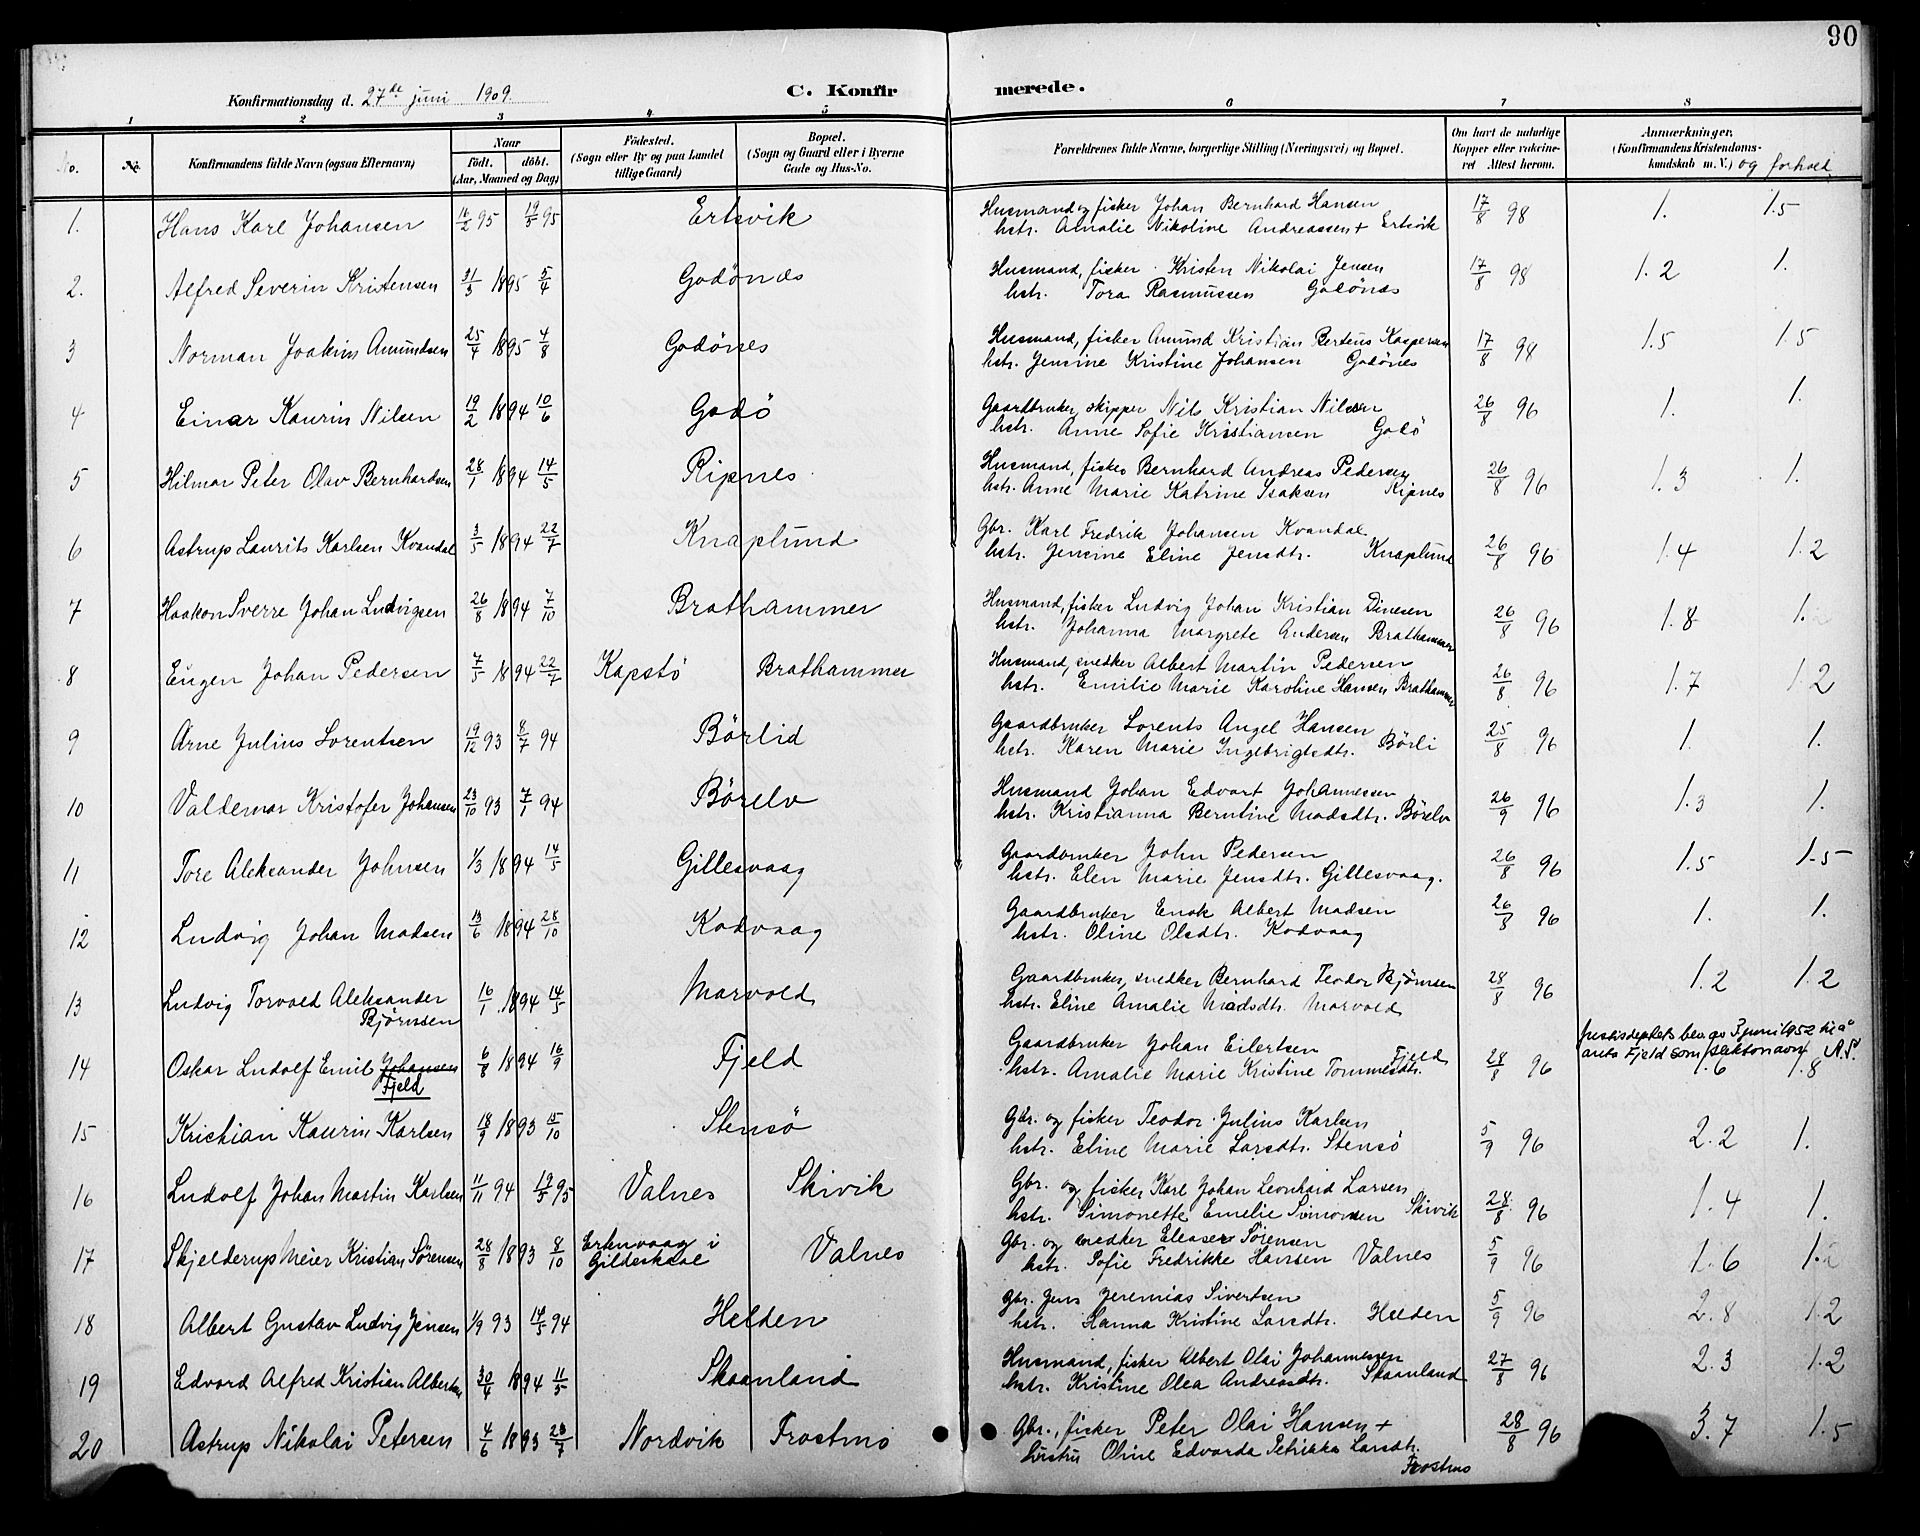 90
Konfirmationsdag d. 27de juni 1909.
C. Konfirmerede.
1 2 3 4 5 6 7 8
No.
No.
Konfirmandens fulde Navn (ogsaa Efternavn)
Naar
født. døbt.
(Aar, Maaned og Dag)
Fødested.
(Sogn eller By og paa Landet
tillige Gaard)
Bopæl.
(Sogn og Gaard eller i Byerne
Gade og Hus-No.
Forældrenes fulde Navne, borgerlige Stilling (Næringsvei) og Bopæl.
Om havt de naturlige
Kopper eller vakcine-
ret Attest herom.
Anmærkninger.
(Konfirmandens Kristendoms-
kundskab m. V.) og forhold
1. Hans Karl Johansen 14/2 95 19/5 95 Ertsvik Husmand og fisker Johan Bernhard Hansen 17/8 98 1. 1.5
hstr. Amalie Nikoline Andreassen + Ertsvik
2. Alfred Severin Kristensen 31/3 1895 5/4 Godönes Husmand, fisker Kristen Nikolai Jensen 17/8 98 1.2 1.
hstr. Tora Rasmussen Godönes
3 Norman Joakim Amundsen 25/4 1895 4/8 Godönes Husmand, fisker Amund Kristian Berteus Kaspersen 17/8 98 1.5 1.5
hstr. Jensine Kristine Johansen Godönes
4 Einar Kaurin Nilsen 19/2 1894 10/6 Godö Gaardbruker, skipper Nils Kristian Nilsen 26/8 96 1. 1.
hstr. Anne Sofie Kristiansen Godö
5 Hilmar Peter Olav Bernhardsen 28/1 1894 14/5 Ripnes Husmand, fisker Bernhard Andreas Pedersen 26/8 96 1.3 1.
hstr. Anne Marie Katrine Isaksen Ripnes
6 Astrup Laurits Karlsen Kvandal 3/5 1894 22/7 Knaplund Gbr. Karl Fredrik Johansen Kvandal 26/8 96 1.4 1.2
hstr. Jensine Eline Jensdtr. Knaplund
7 Haakon Sverre Johan Ludvigsen 26/8 1894 7/10 Brathammer Husmand, fisker Ludvig Johan Kristian Dinesen 26/8 96 1.8 1.
hstr. Johanna Margrete Andersen Brathammer
8 Eugen Johan Pedersen 7/5 1894 22/7 Kapstö Brathammer Husmand, snedker Albert Martin Pedersen 26/8 96 1.7 1.2
hstr. Emilie Marie Karoline Hansen Brathammer
9 Arne Julius Lorentsen 19/12 93 8/7 94 Börlid Gaardbruker Lorents Angel Hansen 25/8 96 1. 1.
hstr. Karen Marie Ingebrigtsdtr. Börli
10 Valdemar Kristofer Johansen 23/10 93 7/1 94 Börelv Husmand Johan Edvart Johannessen 26/9 96 1.3 1.
hstr. Kristianna Berntine Madsdtr. Börelv
11 Tore Aleksander Johnsen 1/3 1894 14/5 Gillesvaag Gaardbruker John Pedersen 26/8 96 1.5 1.5
hstr. Elen Marie Jensdtr. Gillesvaag.
12 Ludvig Johan Madsen 13/6 1894 28/10 Kodvaag Gaardbruker Enok Albert Madsen 26/8 96 1. 1.
hstr. Oline Olsdtr. Kodvaag
13 Ludvig Torvald Aleksander 16/1 1894 14/5 Marvold Gaardbruker, snedker Bernhard Teodor Björnsen 28/8 96 1.2 1.2
Björnsen hstr. Eline Amalie Madsdtr. Marvold
14 Oskar Ludolf Emil Johansen 6/8 1894 16/9 Fjeld Gaardbruker Johan Eilertsen Fjeld 28/8 96 1.6 1.8
Fjeld hstr. Amalie Marie Kristine Tommesdtr.
Justisdeptets bev. av 3 juni 1952 til å
anta Fjeld som slektsnavn
15 Kristian Kaurin Karlsen 18/9 1893 15/10 Stensö Gbr. og fisker Teodor Julius Karlsen 5/9 96 2.2 1.
hstr. Eline Marie Larsdtr. Stensö
16 Ludolf Johan Martin Karlsen 11/11 94 19/5 95 Valnes Skivik Gbr. og fisker Karl Johan Leonhard Larsen 28/8 96 1.4 1.
hstr. Simonette Emelie Simonsen Skivik
17 Skjelderup Meier Kristian Sörensen 28/8 1893 8/10 Ertenvaag i Gildeskaal Valnes Gbr. og snedker Eleaser Sörensen 5/9 96 1.6 1.
hstr. Sofie Fredrikke Hansen Valnes
18 Albert Gustav Ludvig Jensen 1/9 93 14/5 94 Helden Gbr. Jens Jeremias Sivertsen 5/9 96 2.8 1.2
hstr. Hanna Kristine Larsdtr. Helden
19 Edvard Alfred Kristian Albertsen 30/4 1894 11/5 Skaanland Husmand, fisker Albert Olai Johannessen 27/8 96 2.3 1.2
hstr. Kristine Olea Andreasdtr. Skaanland
20 Astrup Nikolai Petersen 4/6 1893 23/7 Nordvik Frostmo Gbr., fisker Peter Olai Hansen + 28/8 96 3.7 1.5
hustru Oline Edvarda Petrikke Larsdtr.
Frostmo